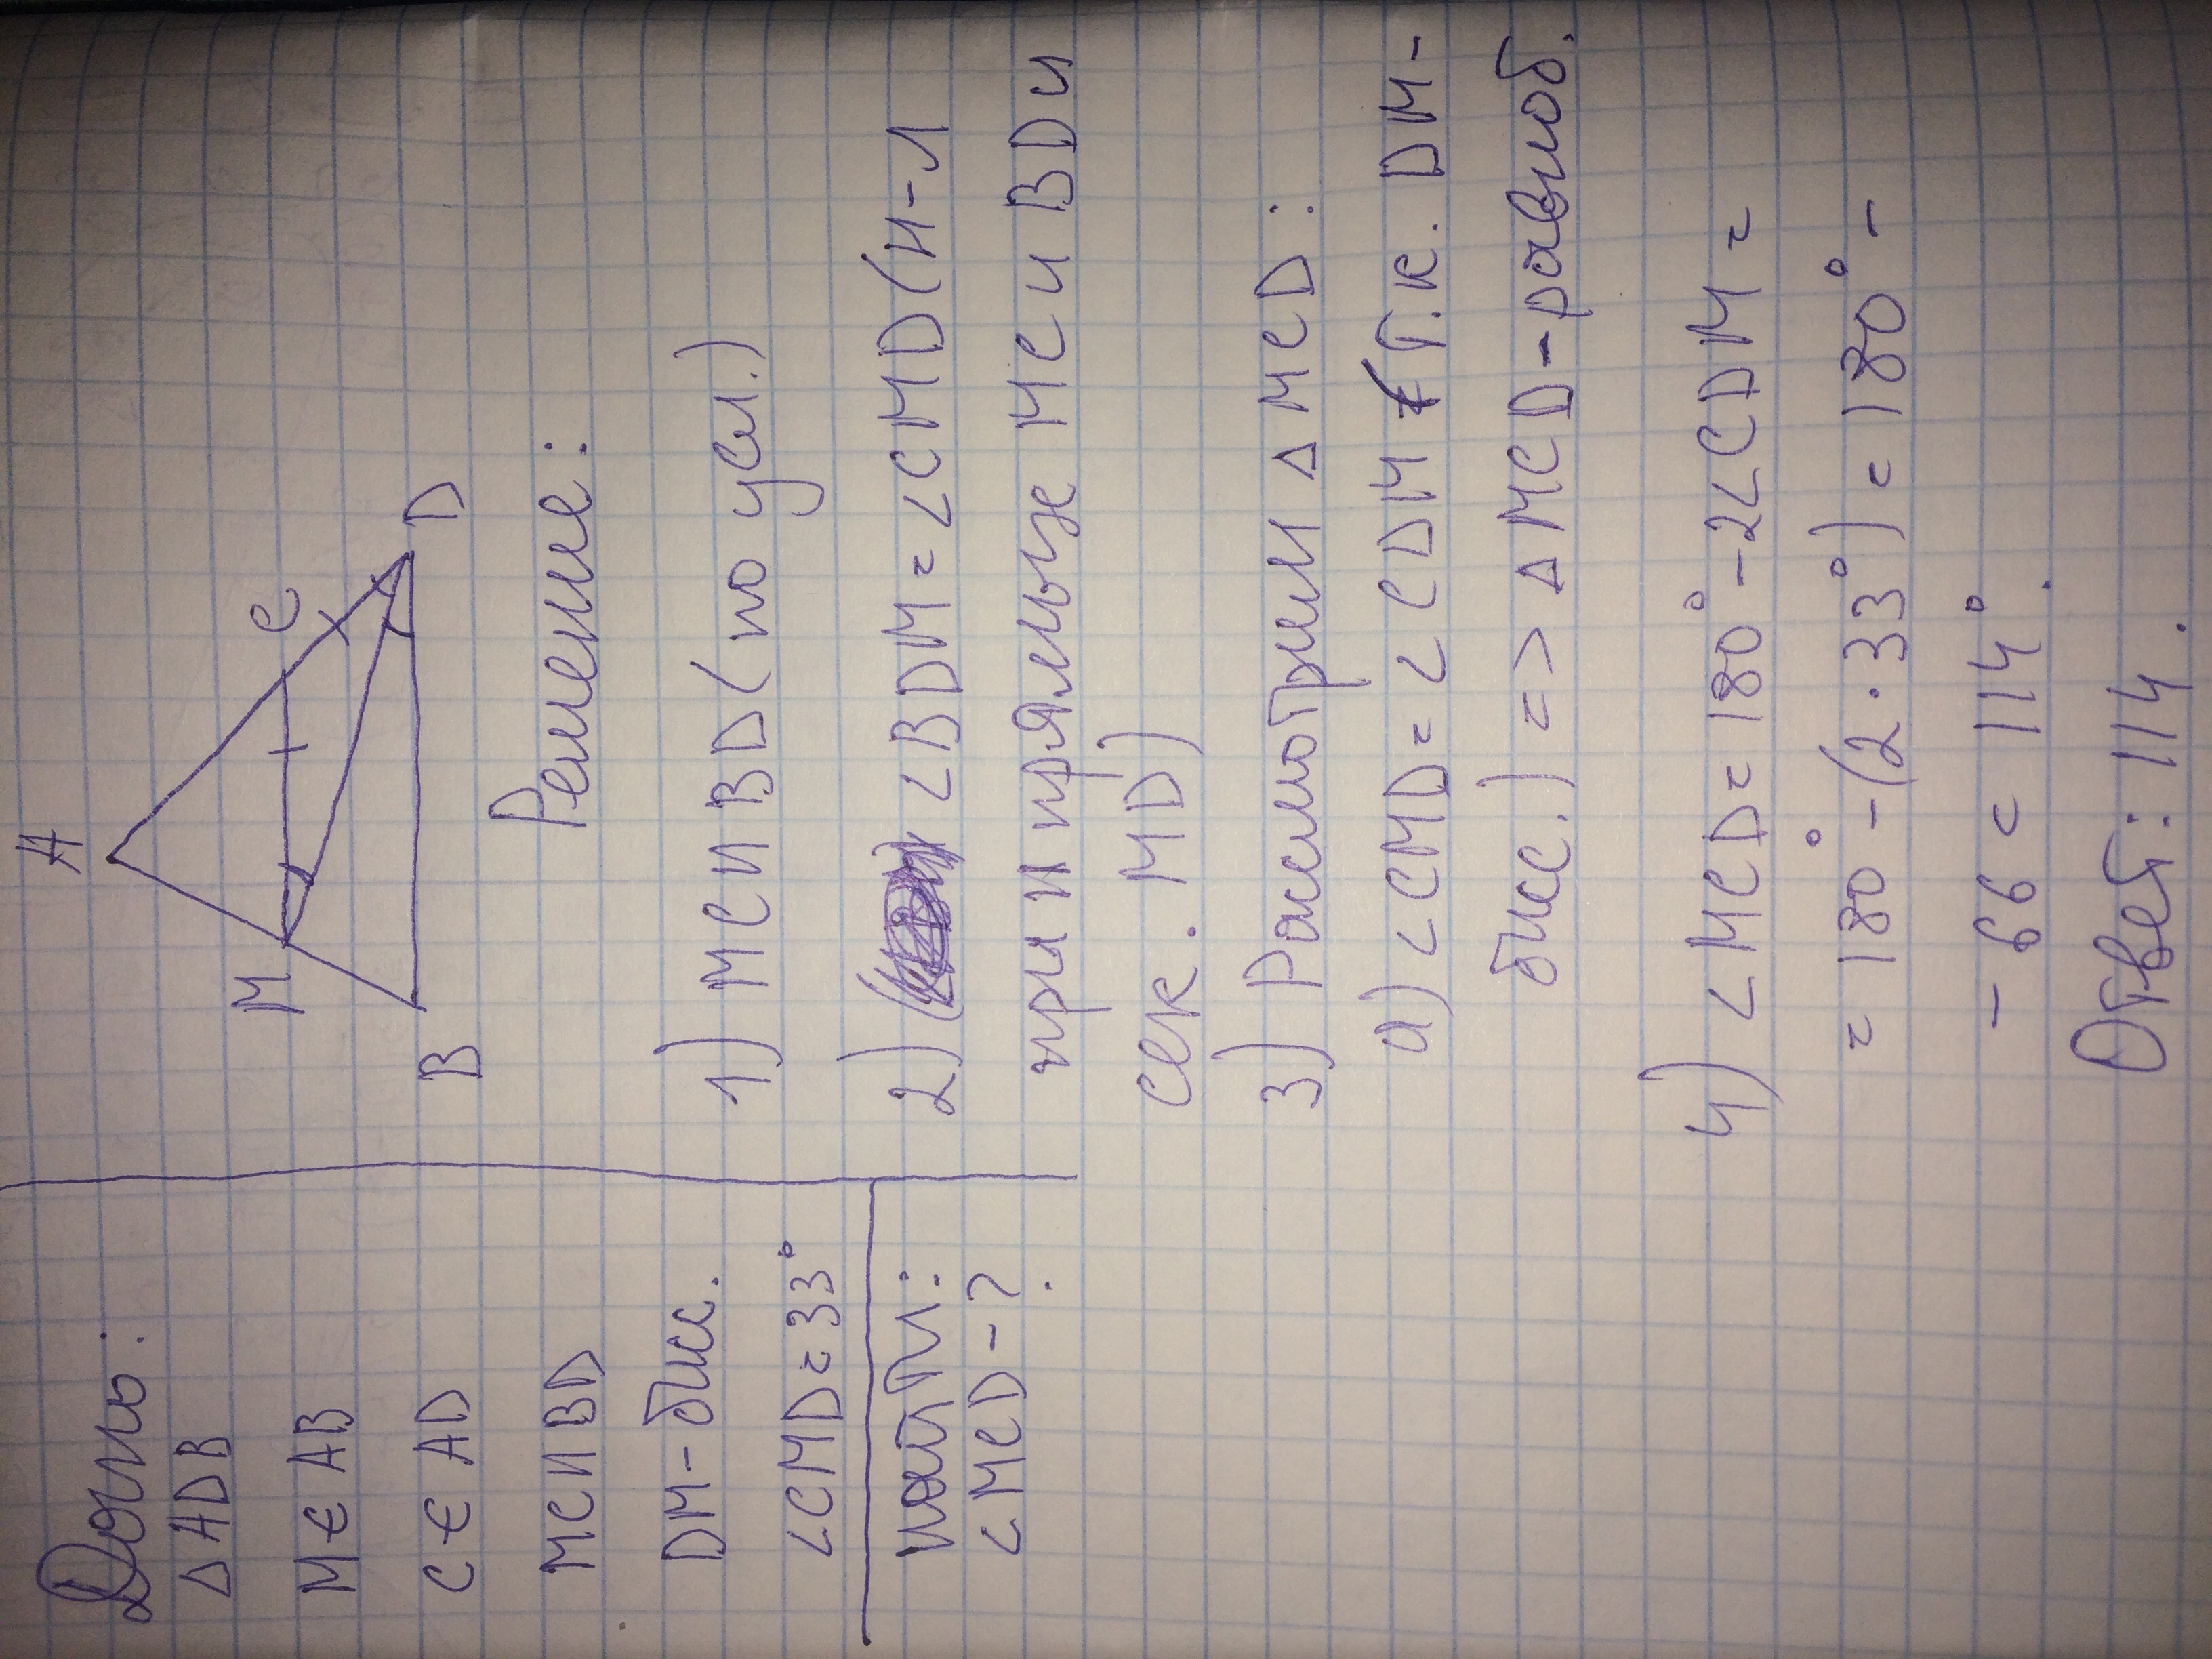 Дано:
△ADB
M∈AB
C∈AD
MC||BD
DM-бис.
∠CMD=33°
Найти:
∠MCD-?
A
M
C
B
D
Решение:
1) MC||BD (по усл.)
2) ∠BDM=∠CMD (н-л
при || прямых MC и BD и
сек. MD)
3) Расмотрим △MCD:
а) ∠CMD=∠CDM (т.к. DM-
бис.) => △MCD-равноб.
4) ∠MCD=180°-2∠CDM=
=180°-(2·33°)=180°-
-66=114°.
Ответ: 114.